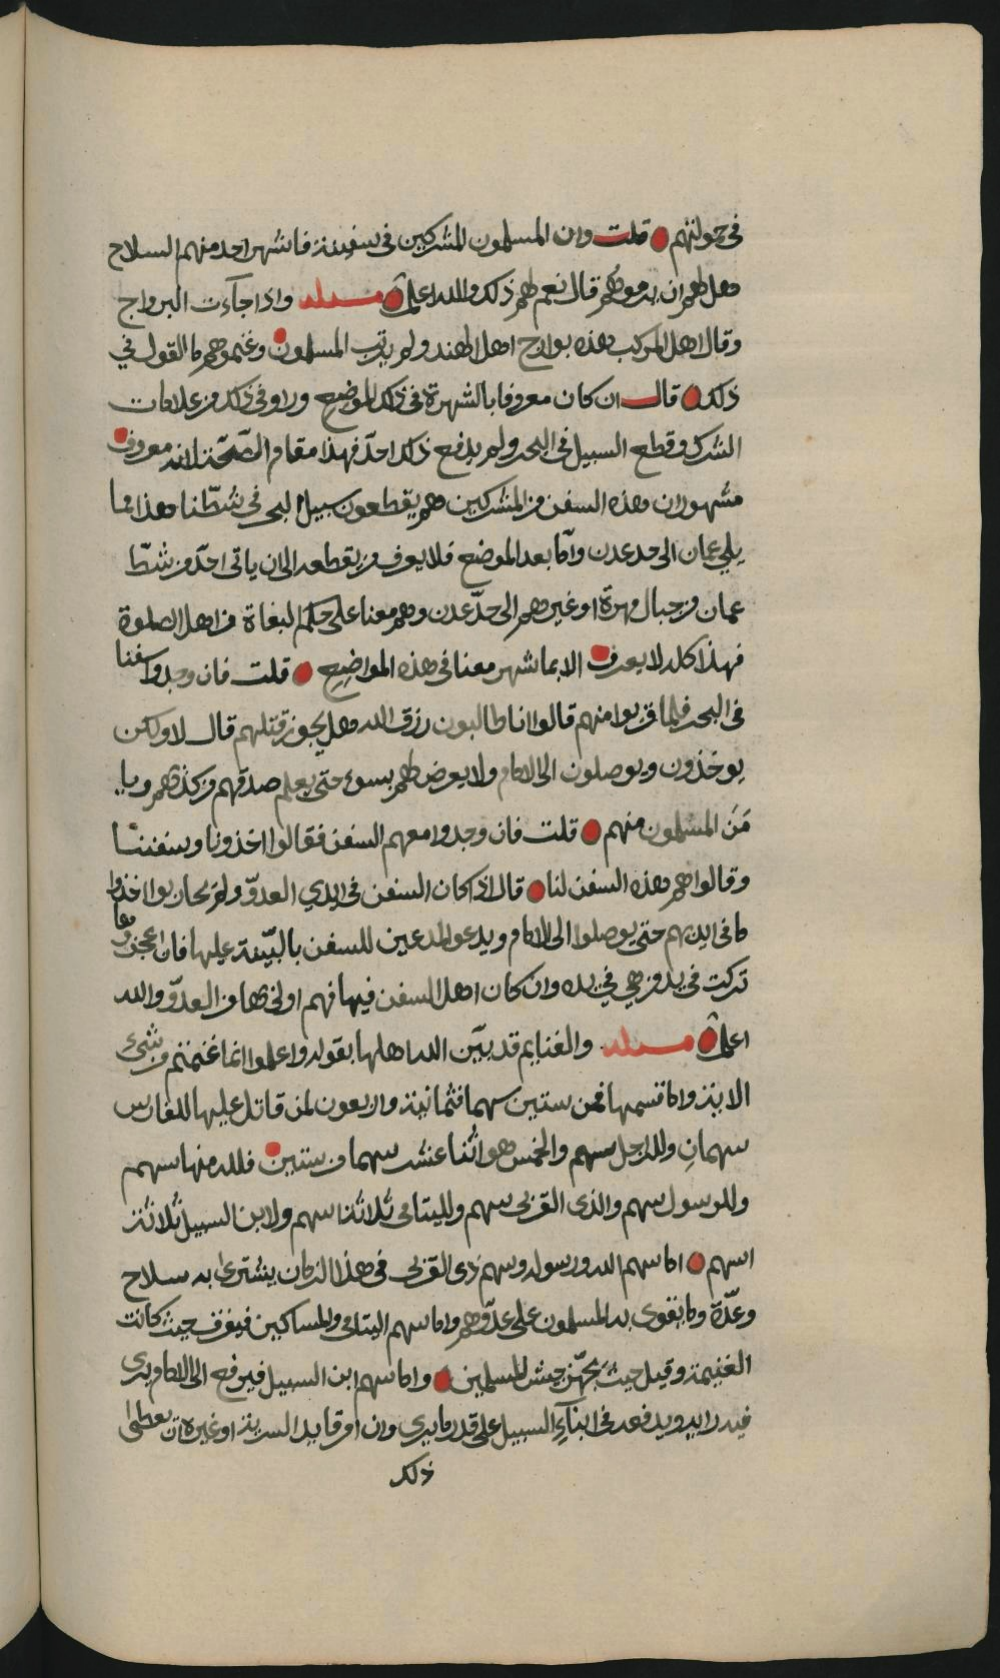 في جولتهم قلت وان المسلمون للمشركين في سفينة فاشهر احد منهم السلاح
هل لهم ان يرموهم قال نعم لهم ذلك والله اعلم مسئله واذا جآءت البوارج
وقال اهل المركب هذه بوارج اهل الهند ولم يرتب المسلمون وغنموهم ما القول في
ذلك قال ان كان معروفا بالشهرة في ذلك الموضع وراو في ذلك من علامات
الشرك وقطع السبيل في البحر ولم يدفع ذلك احدّ فهذا مقام الصّحّة لانه معروف
مشهور ان هذه السفن من المشركين هم يقطعون سبيل البحر في شطّنا هذا مما
يلي عمان الى حد عدن وأمّا بعد الموضع فلا يعرف من يقطعه الى ان ياتى احدّ من شطّ
عمان من جبال مهرة او غيرهم الى حدّ عدن وهم معنا على حكم البغاة من اهل الصلوة
فهذا كله لا يعرف الا بما شهر معنا في هذه المواضِع قلت فان وجدوا سفنا
في البحر فلما قربوا منهم قالوا انا طالبون رزق الله هل يجوز قتلهم قال لا ولكن
يوخذون ويوصلون الى الامام ولا يعرض لهم بسوء حتى يعلم صدقهم من كذبهم ويا
مَن المسلمون منهم قلت فان وجدوا معهم السفن فقالوا اخذونا وسفننا
وقالوا هم هذه السفن لنا قال اذا كان السفن في ايدي العدوّ ولم يحاربوا اخذوا
ما في ايديهم حتى يوصلوا الى الامام ويدعو المدعين للسفن بالبيّنة عليها فان اعجزوها
تركت في يد من هي في يده وان كان اهل السفن فيها فهم اولى بها من العدوّ والله
اعلم مسئله والغنايم قد بيّن الله اهلها بقوله واعلموا انما غنمتم من شيء
الاية واما قسمها فمن ستين سهما فثمانية واربعون لمن قاتل عليها للفارس
سهمانِ وللراجل سهم والخمس هو اثنا عشر سهما من ستين فلله منها سهم
وللرسول سهم ولذى القربى سهم ولليتامى ثلاثة اسهم ولابن السبيل ثلاثة
اسهم اما سهم الله ورسوله وسهم ذى القربى في هذا الزمان يشترى به سلاح
وعدّة وما يقوى به المسلمون على عدّوهم واما سهم اليتامى والمساكين فيفرق حيث كانت
الغنيمة وقيل حيث يجهّز جيش المسلمين واما سهم ابن السبيل فيرفع الى الامام يرى
فيه رايه ويدفعه في ابنآءِ السبيل على قدر ما يرى وان امر قايد السرية او غيره ان يعطى
ذلك